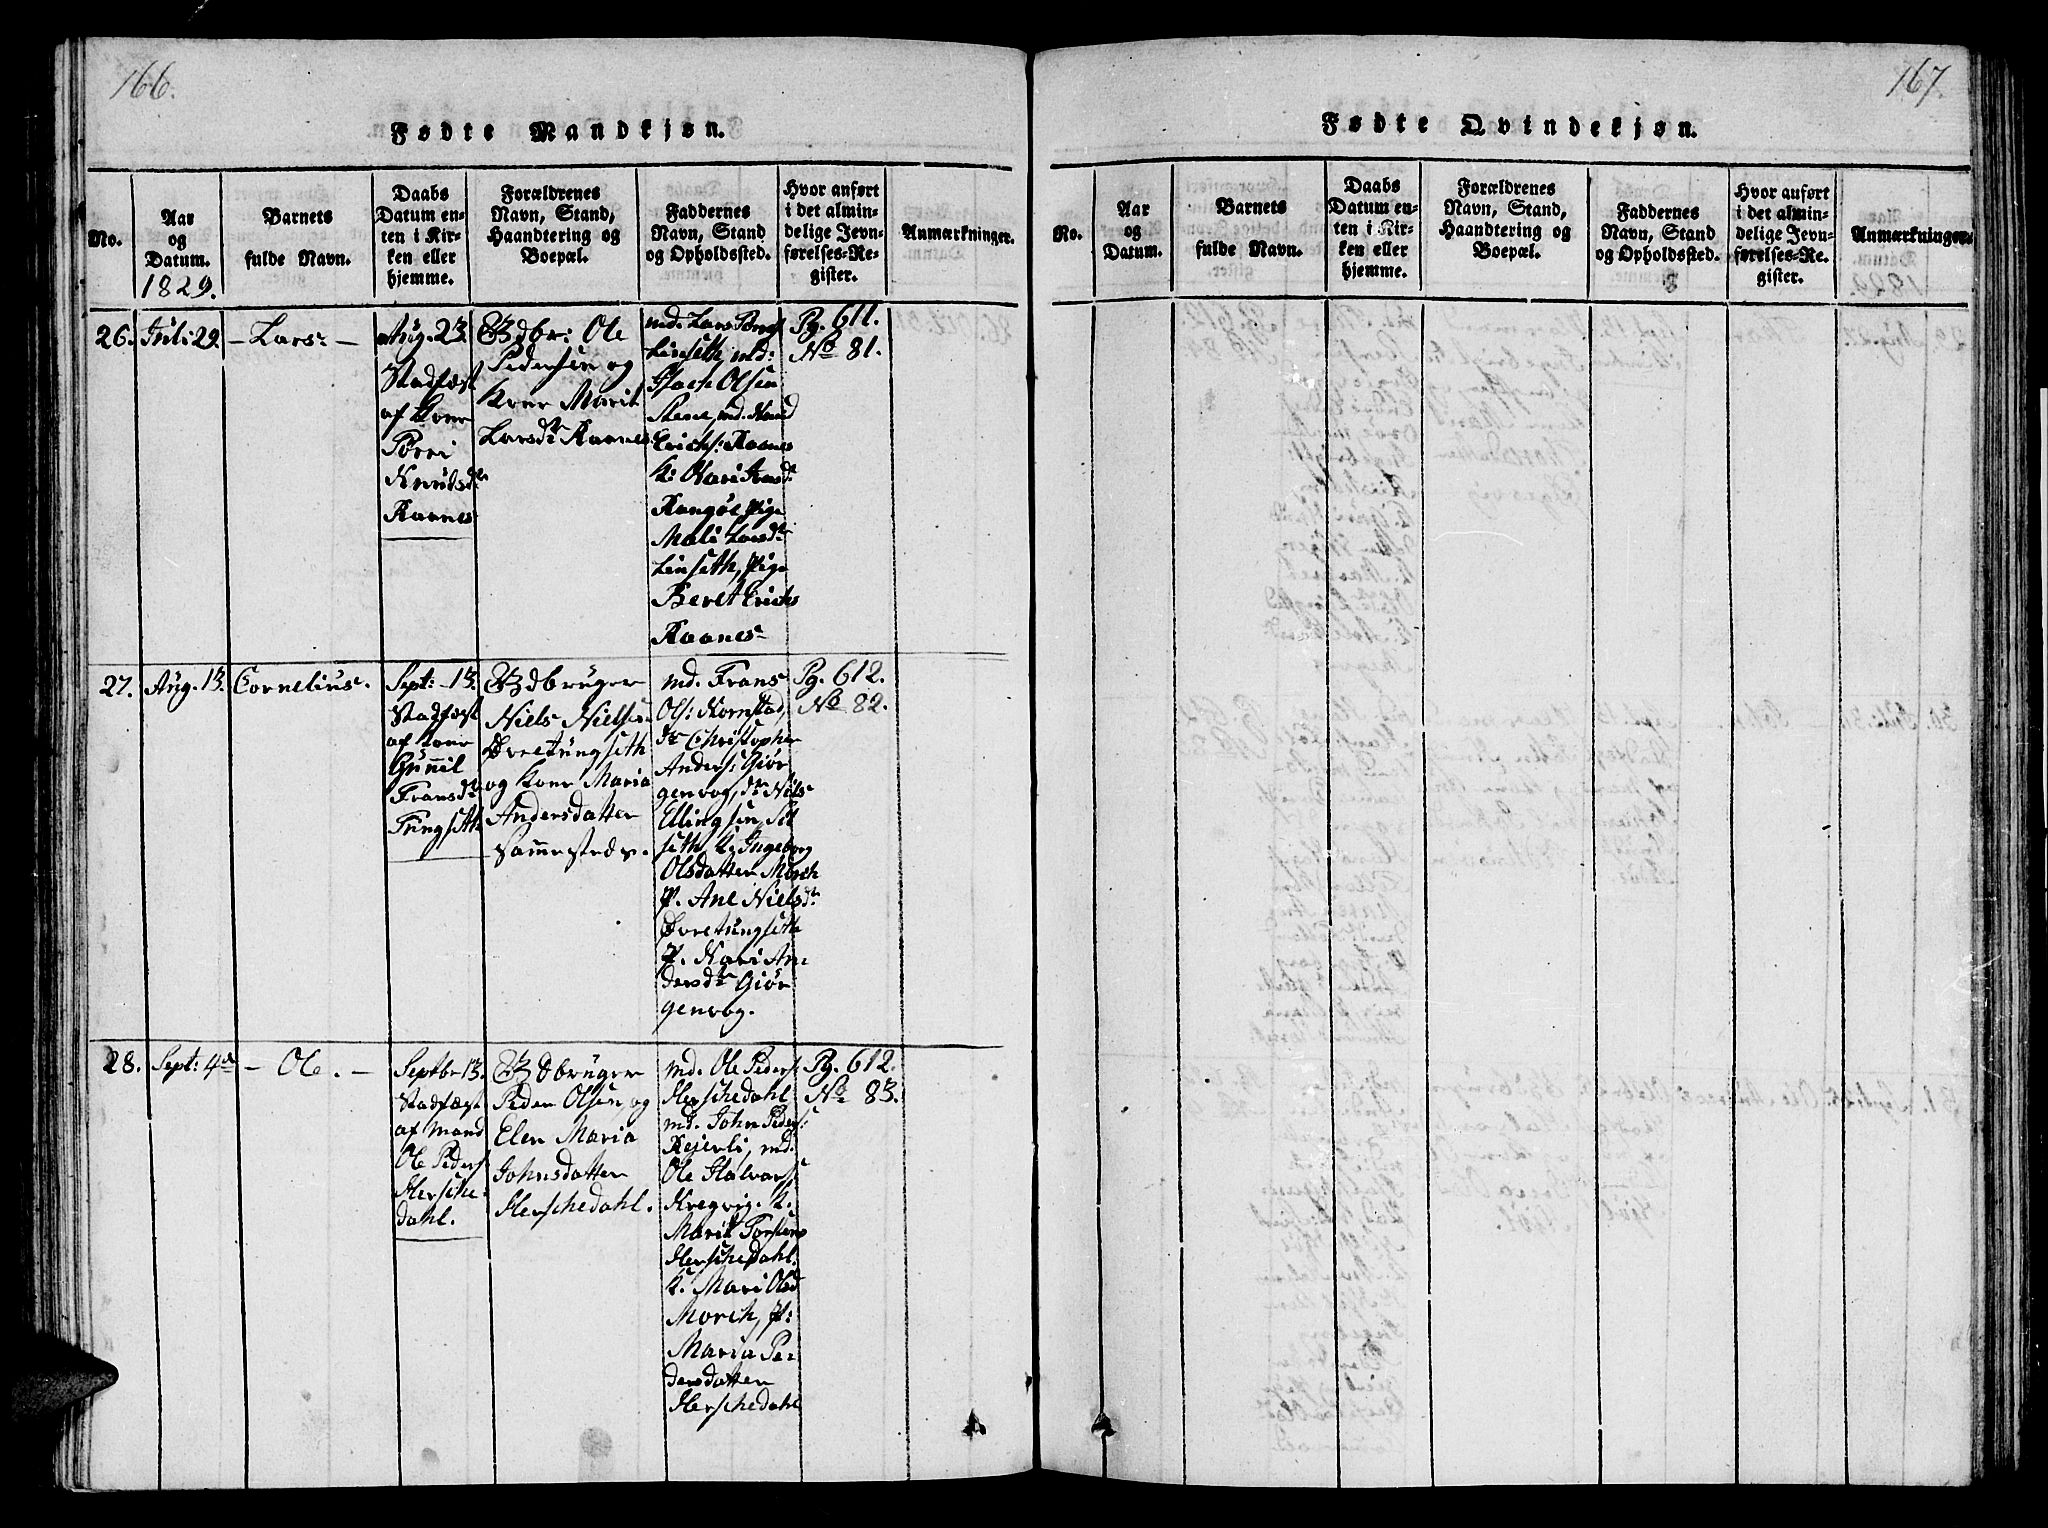 166.
Fødte Mandkjøn.
No.
Aar
og
Datum.
1829.
Barnets
fulde Navn.
Daabs
Datum en-
ten i Kir-
ken eller
hjemme.
Forældrenes
Navn, Stand,
Haandtering og
Boepæl.
Faddernes
Navn, Stand
og Opholdssted.
Hvor anført
i det almin-
delige Jevn-
førelses-Re-
gister.
Anmærkninger.
26.
Juli 29.
- Lars -
Aug. 23.
Stadfæst
af Kone
Knudsdr
Raanes
Gdbr: Ole
Pedersen og
Kone Marit
Larsdr Raanes
md. Lars
Linseth, md:
Olsen
md. Knud
Erichs: Raanes
K: Mari
Pige
Mali Larsdr
Linseth, Pige
Beret Erichs
Raanes
Pg. 611.
No 81.
27.
Aug. 13.
Cornelius.
Sept: 13.
Stadfæst
af Kone
Guñil
Fransdr
Tungseth
Gdbruger
Niels Nielsen
Øvretungseth
og Kone Maria
Andersdatter
Sam̃esteds.
md. Frans
Ols: Kornstad,
Dr Christopher
Anders: Giør
genvog, Dr Niels
Ellingsen Sil
seth K: Ingeborg
Olsdatter Morch
P. Ane Nielsdr
Øvretungseth
P. Kari An
dersdr Giør
genvog.
Pg. 612.
No 82.
28.
Sept: 4de
- Ole. -
Septbr 13.
Stadfæst
af mand
Ole Peders
Hersche-
dahl.
Gdbruger
Peder Olsen og
Elen Maria
Johnsdatter
Herschedahl.
md. Ole Peders
Herschedahl
md. John Peders:
md.
Ole Halvors
Kregvig. K.
Marit Torstens
Herschedahl.
K. Mari Olsd
Morch, P:
Maria Pe-
dersdatter
Herschedahl
Pg. 612.
No 83.
167.
Fødte Qvindekjøn.
No.
Aar
og
Datum.
Barnets
fulde Navn.
Daabs
Datum en-
ten i Kir-
ken eller
hjemme.
Forældrenes
Navn, Stand,
Haandtering og
Boepæl.
Faddernes
Navn, Stand
og Opholdssted.
Hvor anført
i det almin-
delige Jevn-
førelses-Re-
gister.
Anmærkninger.